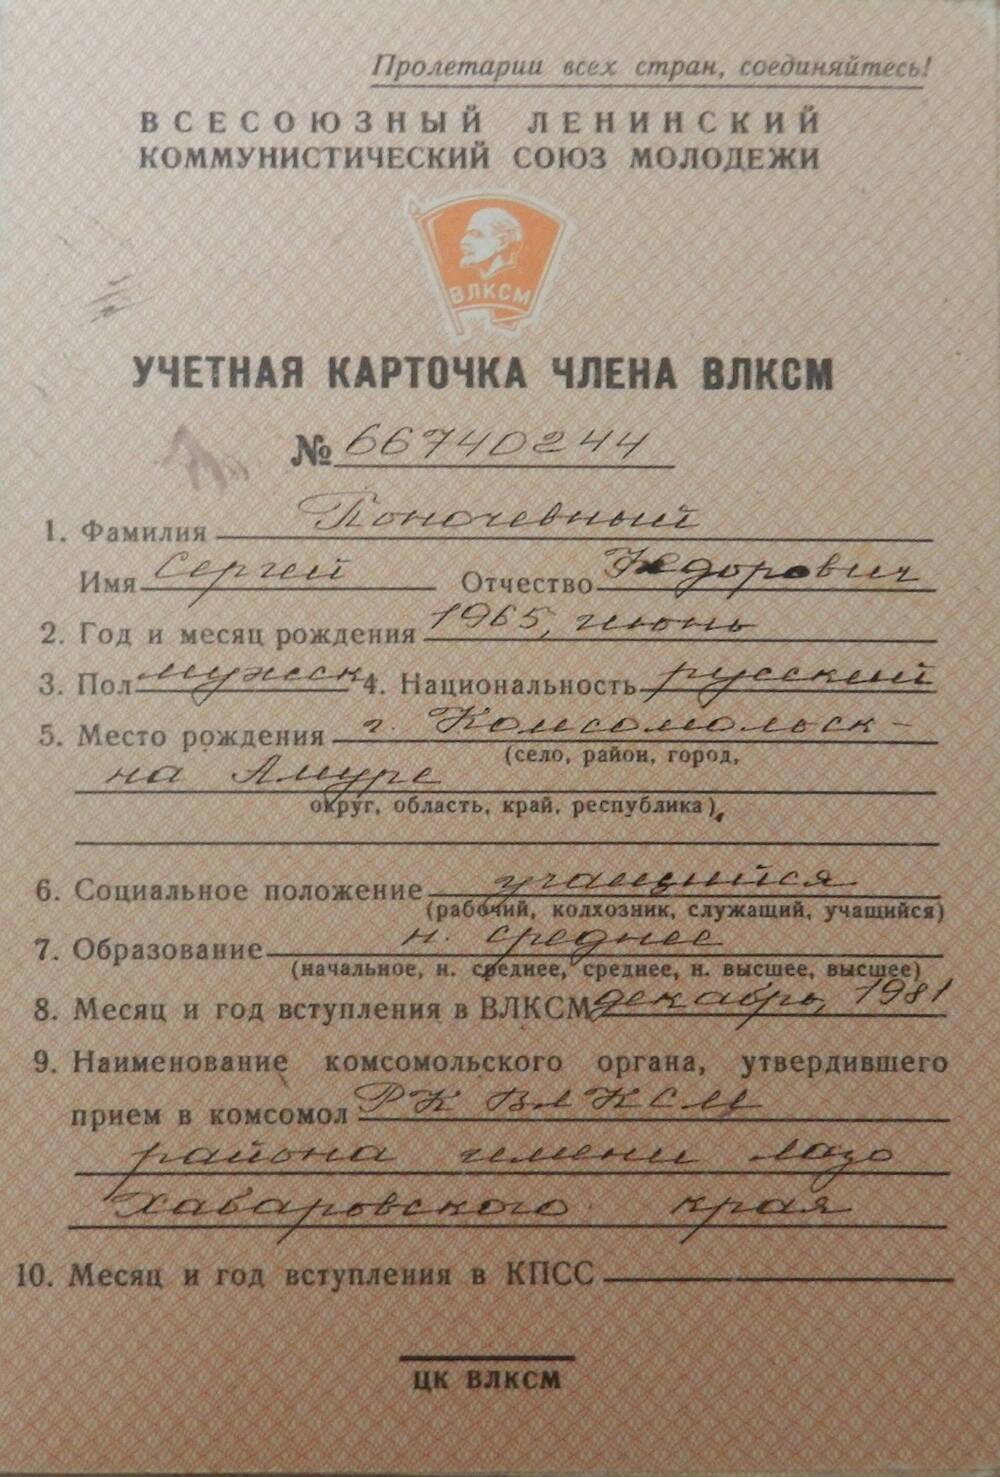 Пролетарии всех стран, соединяйтесь!
ВСЕСОЮЗНЫЙ ЛЕНИНСКИЙ
КОММУНИСТИЧЕСКИЙ СОЮЗ МОЛОДЕЖИ
ВЛКСМ
УЧЕТНАЯ КАРТОЧКА ЧЛЕНА ВЛКСМ
№ 66740244
1. Фамилия Поночевный
Имя Сергей Отчество Федорович
2. Год и месяц рождения 1965, июнь
3. Пол мужск 4. Национальность русский
5. Место рождения г. Комсомольск-
(село, район, город,
на Амуре
округ, область, край, республика)
6. Социальное положение учащийся
(рабочий, колхозник, служащий, учащийся)
7. Образование н. среднее
(начальное, н. среднее, среднее, н. высшее, высшее)
8. Месяц и год вступления в ВЛКСМ декабрь, 1981
9. Наименование комсомольского органа, утвердившего
прием в комсомол РК ВЛКСМ
района имени Лазо
Хабаровского края
10. Месяц и год вступления в КПСС
ЦК ВЛКСМ